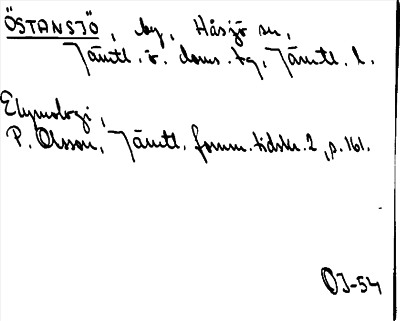 ÖSTANSJÖ, by, Håsjö sn,
Jämtl. ö. doms. tg, Jämtl. l.
Etymologi,
P. Olsson, Jämtl. fornm. tidskr. 2, p. 161.
OJ-54